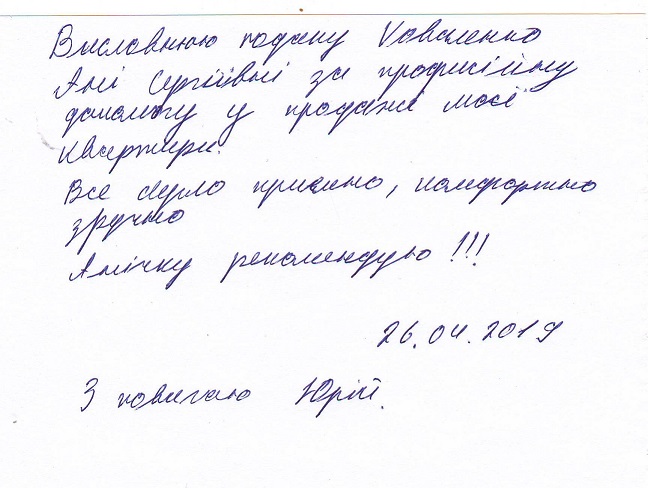 Висловлюю подяку Коваленко
Ані Сергіївні за професійну
допомогу у продажі моєї
квартири.
Все було приємно, комфортно
зручно
Анічку рекомендую!!!
26.04.2019
З повагою Юрій.